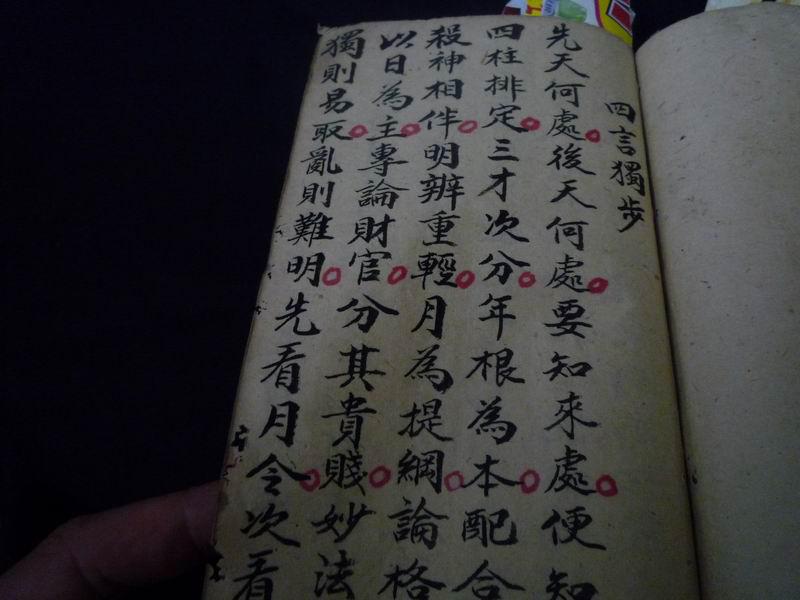 四言獨步
先天何處。後天何處。要知來處。便知
四柱排定。三才次分。年根為本。配合
殺神相伴。明辨重輕。月為提綱。論格
以日為主。專論財官。分其貴賤。妙法
獨則易取。亂則難明。先看月令。次看